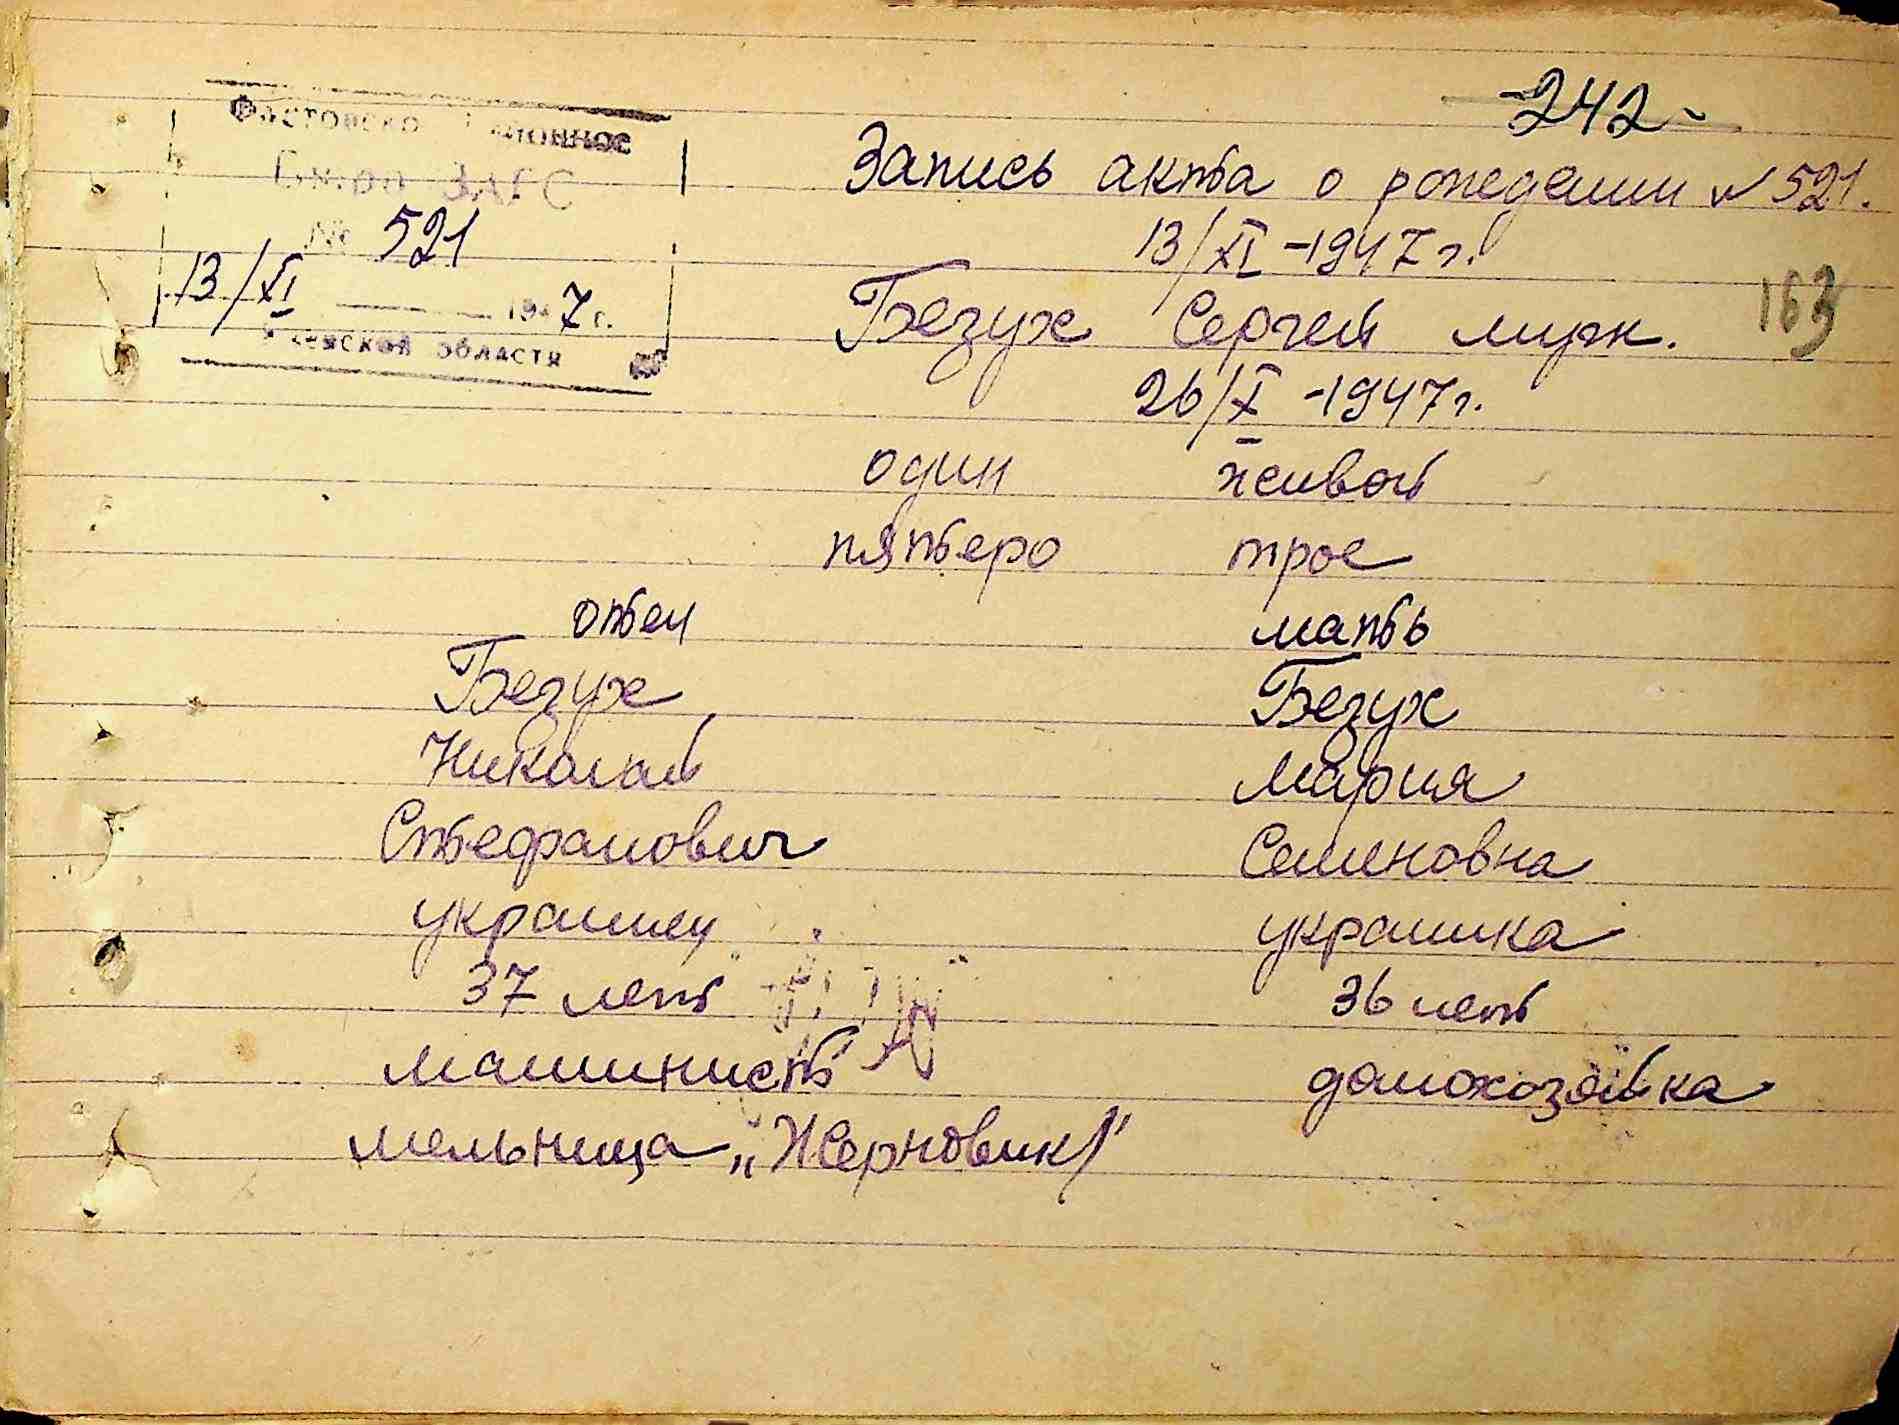 -242-
Фастовско
Бюро ЗАГС
№ 521
13/XI 1947 г.
области
Запись акта о рождении № 521.
13/XI -1947 г.
163
Безух Сергей муж.
26/X -1947 г.
один живой
пятеро трое
отец мать
Безух Безух
Николай Мария
Стефанович Семеновна
украинец украинка
37 лет 36 лет
машинист домохозяйка
мельница „Жерновик"